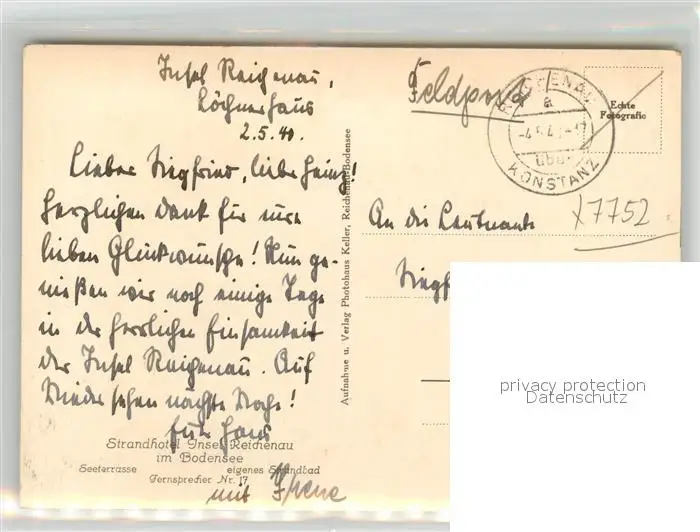 Insel Reichenau,
Löchnerhaus
2.5.40.
Lieber Siegfried, lieber Heinz!
Herzlichen Dank für eure
lieben Glückwünsche! Nun ge-
nießen wir noch einige Tage
in der herrlichen Einsamkeit
der Insel Reichenau. Auf
Wiedersehen nächste Woche!
Euer Hans
mit Irene
Strandhotel Insel Reichenau
im Bodensee
Seeterrasse eigenes Strandbad
Fernsprecher Nr. 17
Aufnahme u. Verlag Photohaus Keller, Reichenau-Bodensee
Feldpost
REICHENAU
a
über
KONSTANZ
Echte
Fotografie
x7752
An die Leutnants
Siegf
privacy protection
Datenschutz